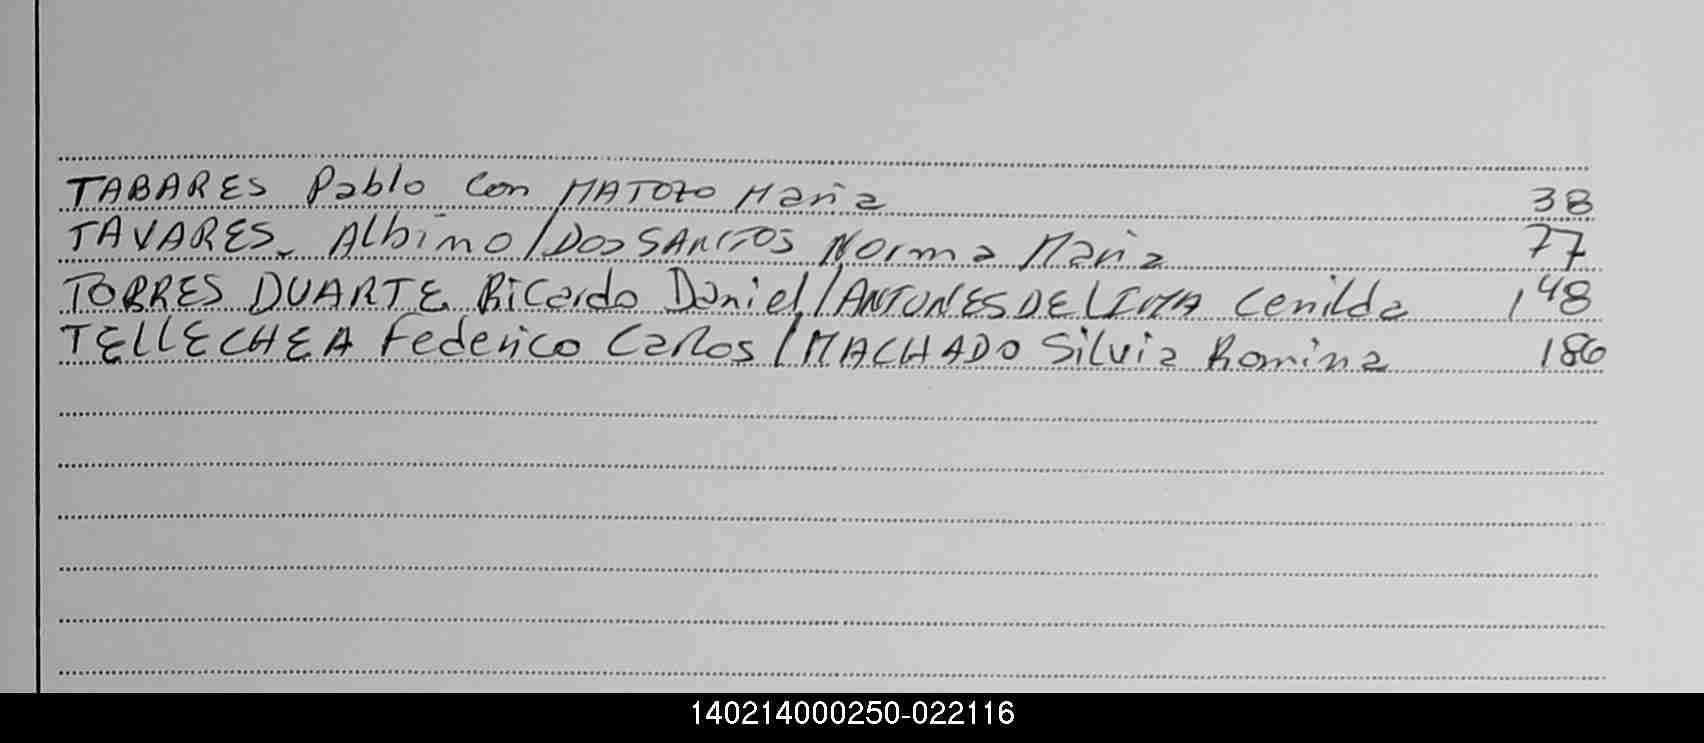 TABARES Pablo Con MATOZO Maria 38
TAVARES. Albino / DOS SANTOS Norma Maria 77
TORRES DUARTE Ricardo Daniel / ANTUNES DE LIMA Cenilda 148
TELLECHEA Federico Carlos / MACHADO Silvia Romina 186
140214000250-022116